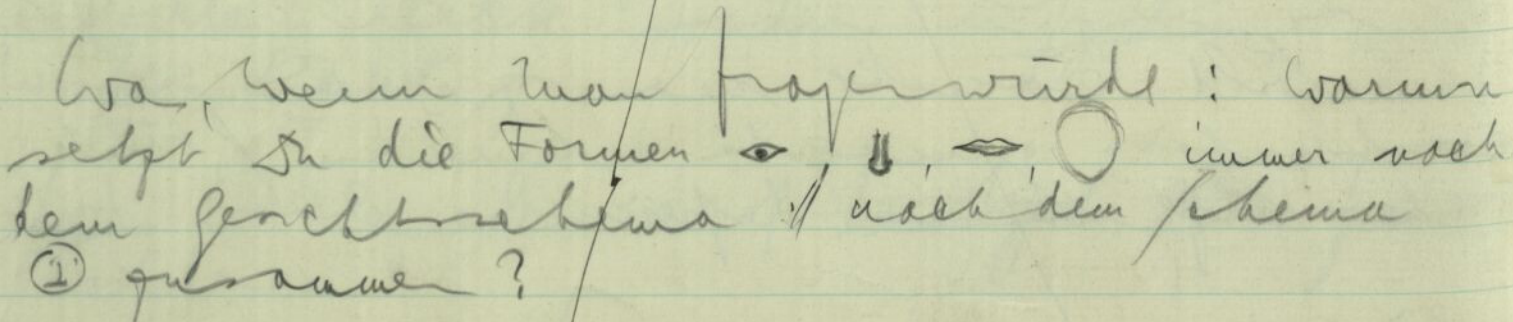 Wa, wenn man fragen würde: warum
setzt Du die Formen , , , immer nach
dem Gesichtsschema // nach dem Schema
zusammen?